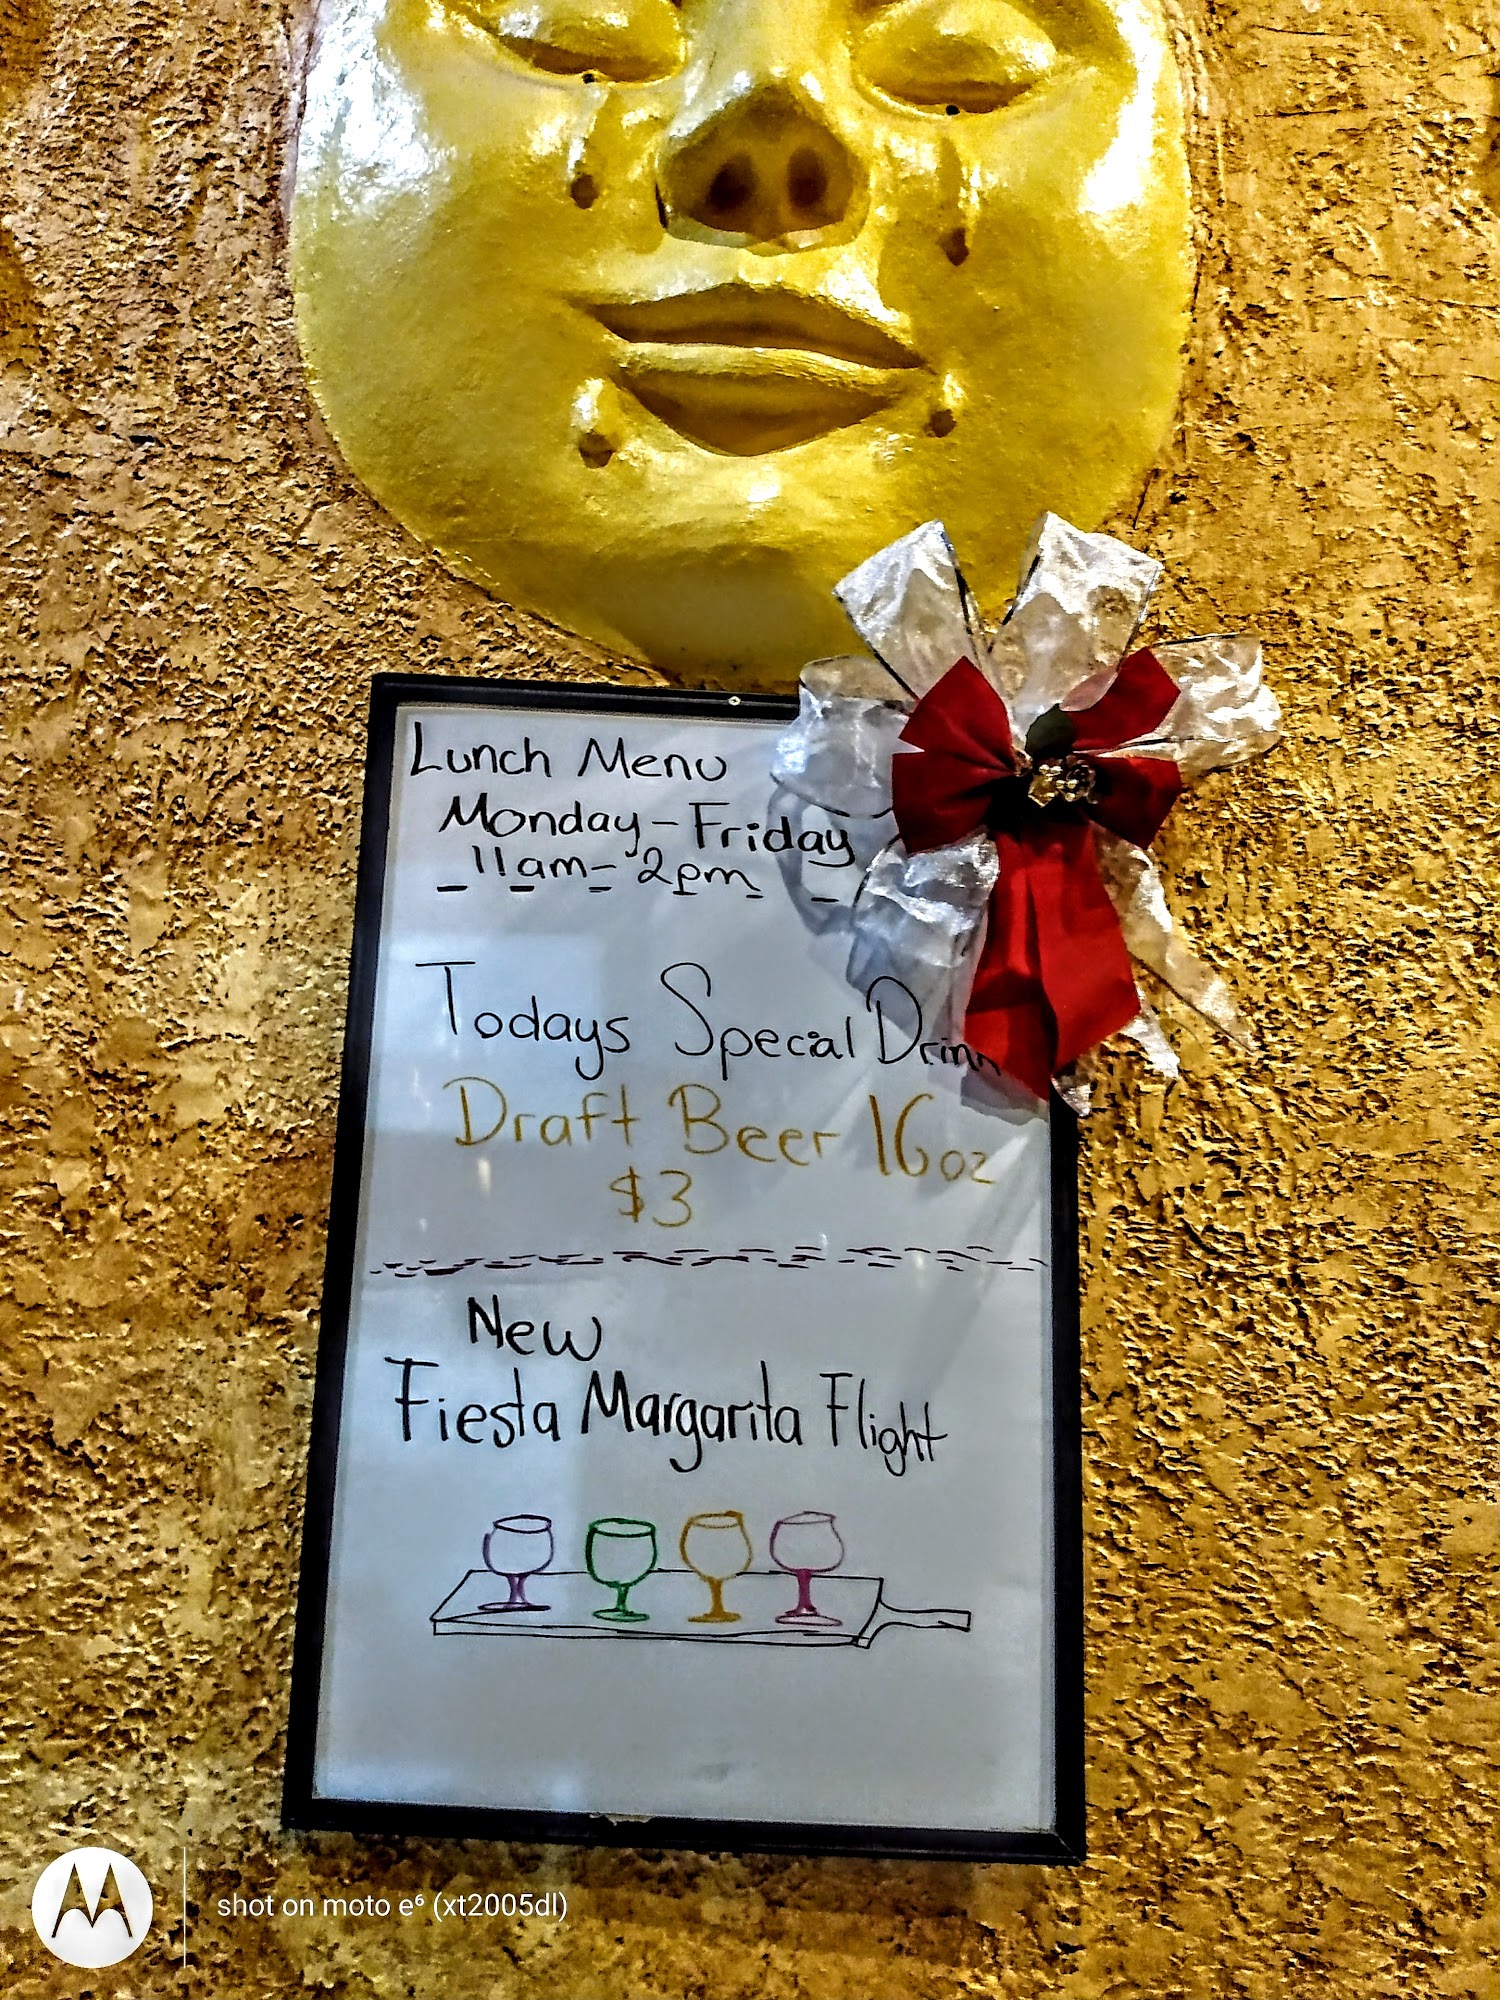 Lunch Menu
Monday-Friday
11am-2pm
Todays Special Drin
Draft Beer 16oz
$3
New
Fiesta Margarita Flight
shot on moto e⁶ (xt2005dl)